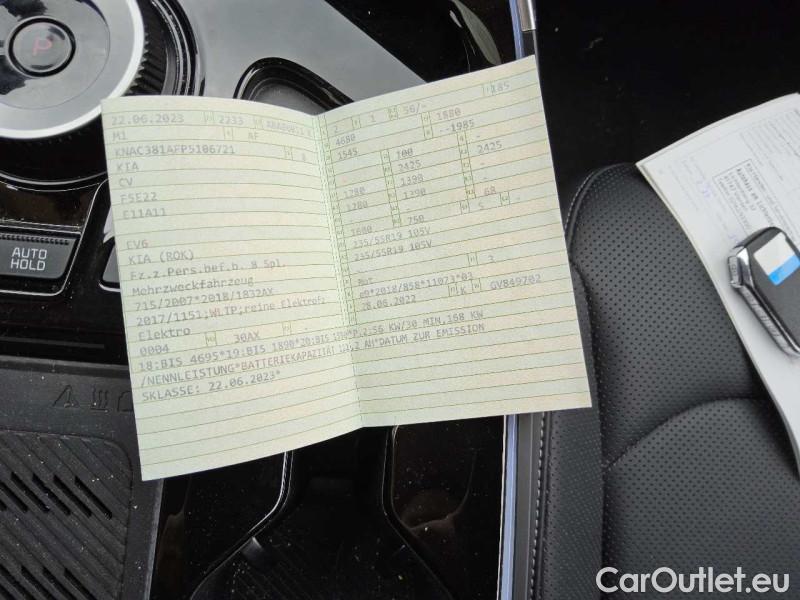 P
AUTO
HOLD
22.06.2023 2233
M1 AF
KNAC381AFP5106721
KIA
CV
F5E22
E11A11
EV6
KIA (ROK)
Fz.z.Pers.bef.b. 8 Spl.
Mehrzweckfahrzeug
715/2007*2018/1832AX
2017/1151;WLTP;reine Elektrof;
Elektro
0004 30AX
18:BIS 4695*19:BIS 1890*20:BIS *P.2:56 KW/30 MIN,168 KW
/NENNLEISTUNG*BATTERIEKAPAZITÄT AH*DATUM ZUR EMISSION
SKLASSE: 22.06.2023*
2 1 56/- 185
4680 1880
1545 --1985
100 -
2425 2425
1280 1390 -
1280 1390 -
1600 750 68
235/55R19 105V S -
235/55R19 105V
-
Rot 3
e9*2018/858*11073*03
28.06.2022 K GVB49702
CarOutlet.eu